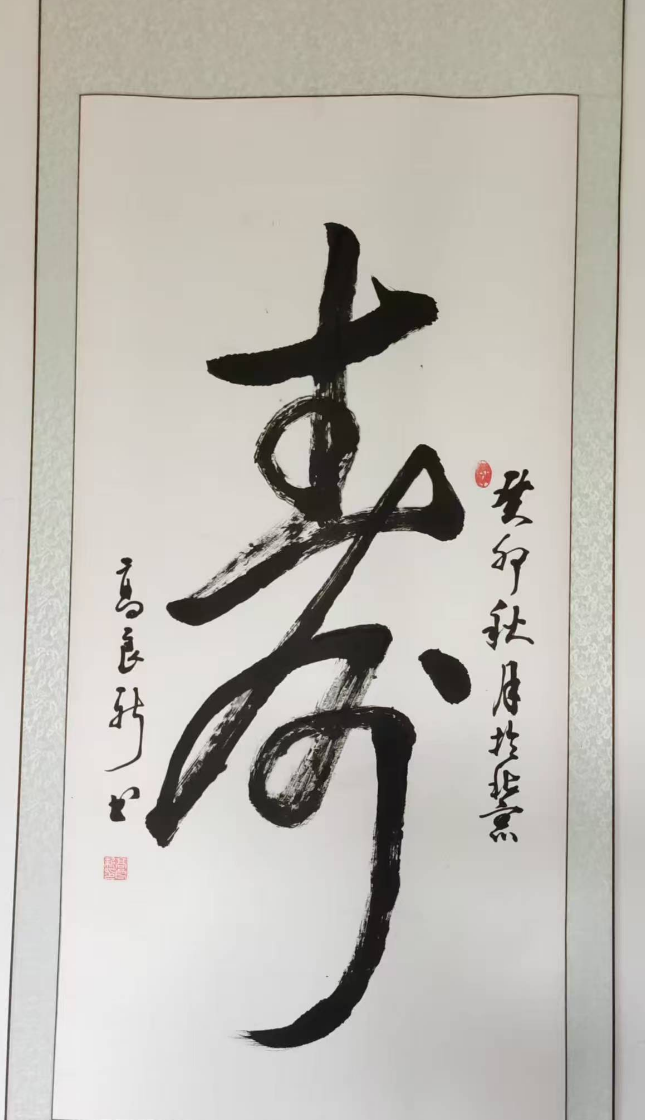 癸卯秋月於北京
寿
高良新书